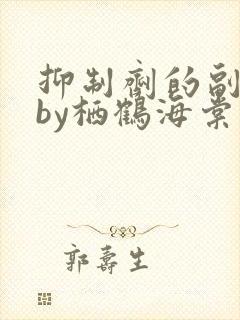 抑制剂的副
by栖鹤海棠
郭寿生